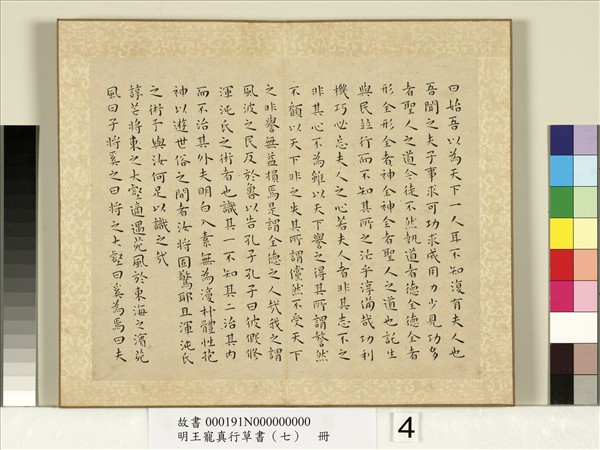 曰始吾以為天下一人耳不知復有夫人也
吾聞之夫子事求可功求成用力少見功多
者聖人之道今徒不然執道者德全德全者
形全形全者神全神全者聖人之道也託生
與民並行而不知其所之汒乎淳備哉功利
機巧必忘夫人之心若夫人者非其志不之
非其心不為雖以天下譽之得其所謂謷然
不顧以天下非之失其所謂儻然不受天下
之非譽無益損焉是謂全德之人哉我之謂
風波之民反於魯以告孔子孔子曰彼假修
渾沌氏之術者也識其一不知其二治其內
而不治其外夫明白入素無為復朴體性抱
神以遊世俗之間者汝將固驚耶且渾沌氏
之術予與汝何足以識之哉
諄芒將東之大壑適遇苑風於東海之濱苑
風曰子將奚之曰將之大壑曰奚為焉曰夫
故書 000191N000000000
明王寵真行草書（七） 冊
4